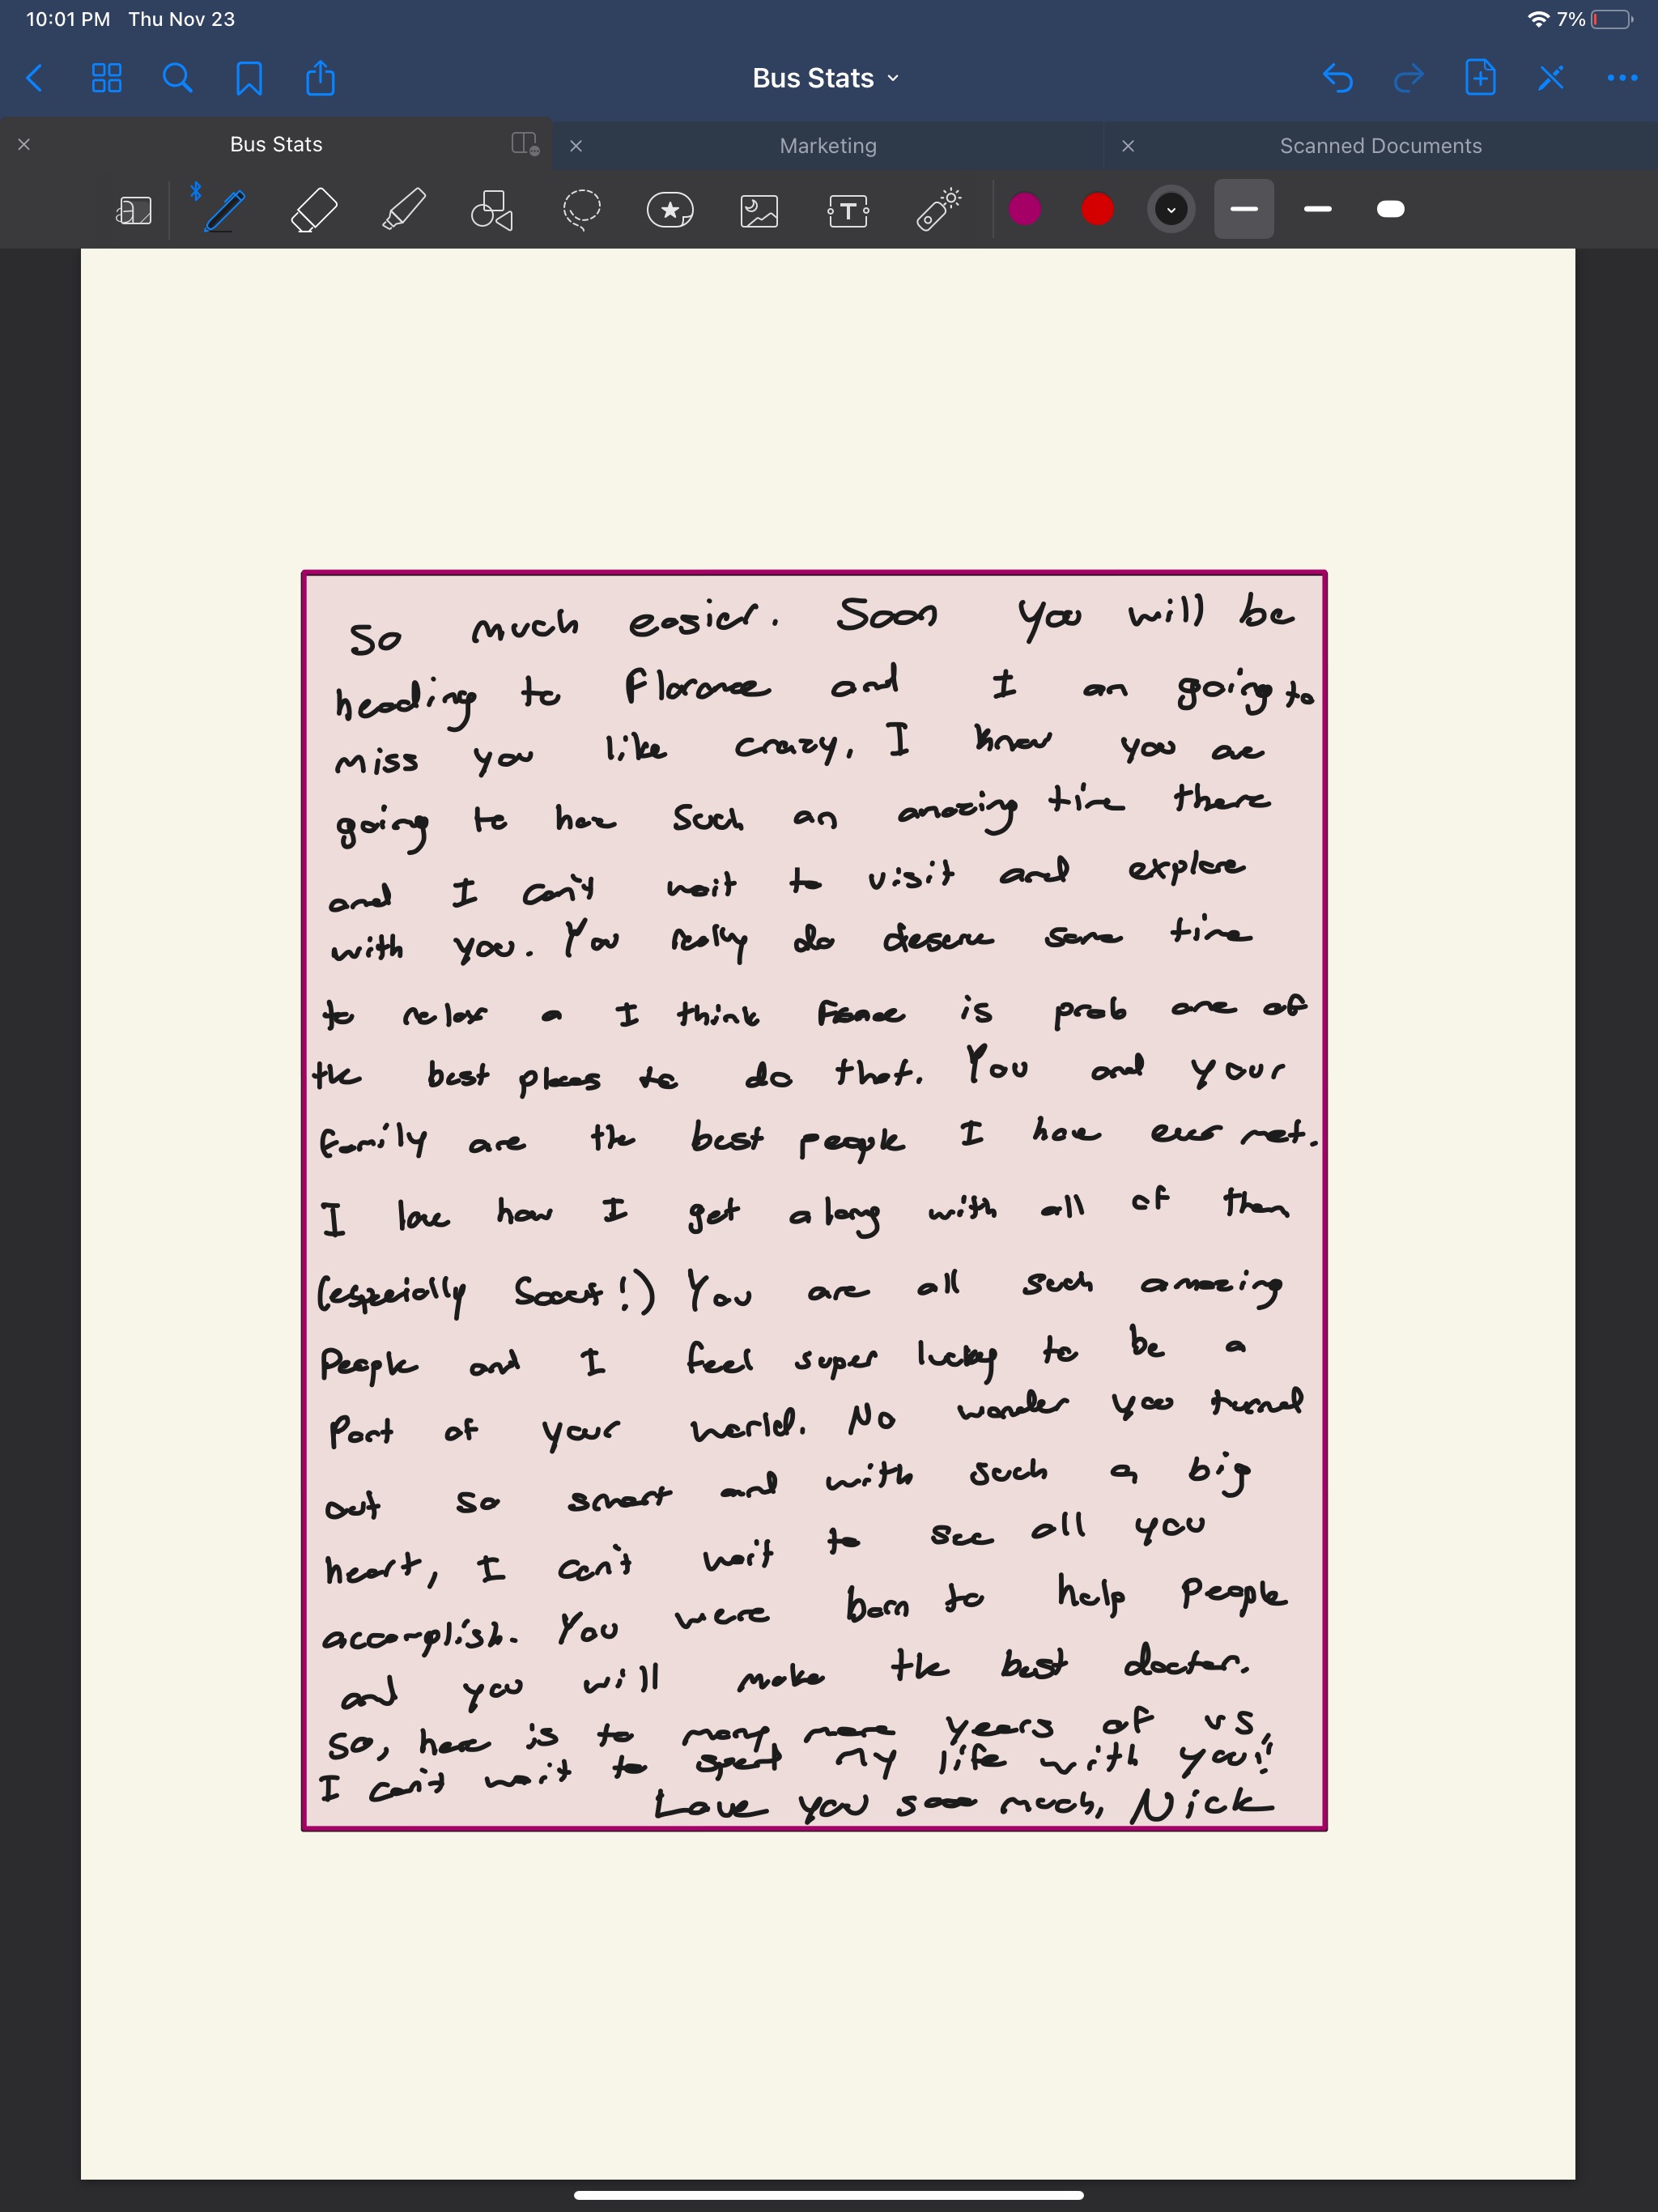 10:01 PM Thu Nov 23 7%
Bus Stats
Bus Stats Marketing Scanned Documents
So much easier. Soon you will be
heading to Florance and I am going to
miss you like crazy. I know you are
going to have such an amazing time there
and I can't wait to visit and explore
with you. You really do deserve some time
to relax a I think is prob one of
the best places to do that. You and your
family are the best people I have ever met.
I love how I get along with all of them
(especially Scout!) You are all such amazing
People and I feel super lucky to be a
Part of your world. No wonder you turned
out so smart and with such a big
heart, I can't wait to see all you
accomplish. You were born to help People
and you will make the best doctor.
So, here is to many more years of us,
I can't wait to spend my life with you!
Love you sooo much, Nick